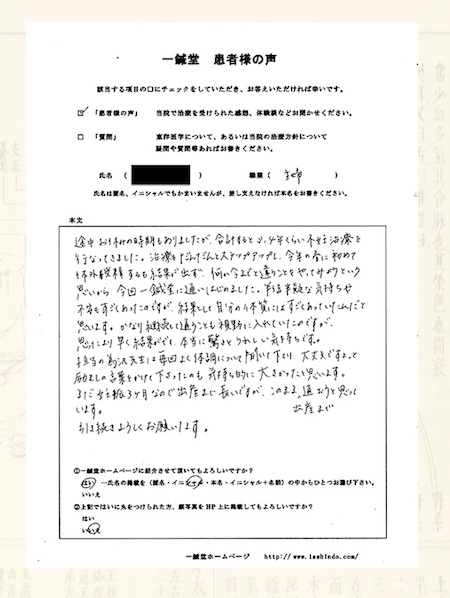 一鍼堂 患者様の声
該当する項目の□にチェックをしていただき、お答えいただければ幸いです。
☑ 「患者様の声」 当院で治療を受けられた感想、体験談などお聞かせください。
□ 「質問」 東洋医学について、あるいは当院の治療方針について
疑問や質問等あればお書きください。
氏名 ( ) 職業 ( 主婦 )
氏名は匿名、イニシャルでもかまいませんが、差し支えなければ本名をお書きください。
本文
途中お休みの時期もありましたが、合計すると3、4年くらい不妊治療を
行なってきました。治療もだんだんとステップアップし、今年の春に初めて
体外受精するも結果が出ず、何か今までと違うことをやってみようという
思いから 今回一鍼堂に通いはじめました。半信半疑な気持ちや
不安もすごくあったのですが、結果として自分の体質にはすごくあっていたんだと
思います。かなり継続して通うことも視野に入れていたのですが、
思ったより早く結果がでて、本当に驚きとうれしい気持ちです。
担当の 先生は毎回よく体調について聞いて下さり、大丈夫ですよっと
励ましの言葉をかけて下さったのも 気持ち的に大きかったと思います。
まだ妊娠3ヶ月なので出産まで長いですが、このまま通おうと思って
います。 出産まで
引き続きよろしくお願いします。
①一鍼堂ホームページに紹介させて頂いてもよろしいですか?
はい ―氏名の掲載を(匿名・イニシャル・本名・イニシャル+名前)の中からひとつお選び下さい。
いいえ
②上記ではいに丸をつけられた方、顔写真をHP上に掲載してもよろしいですか?
はい
いいえ
一鍼堂ホームページ http://www.1sshindo.com/